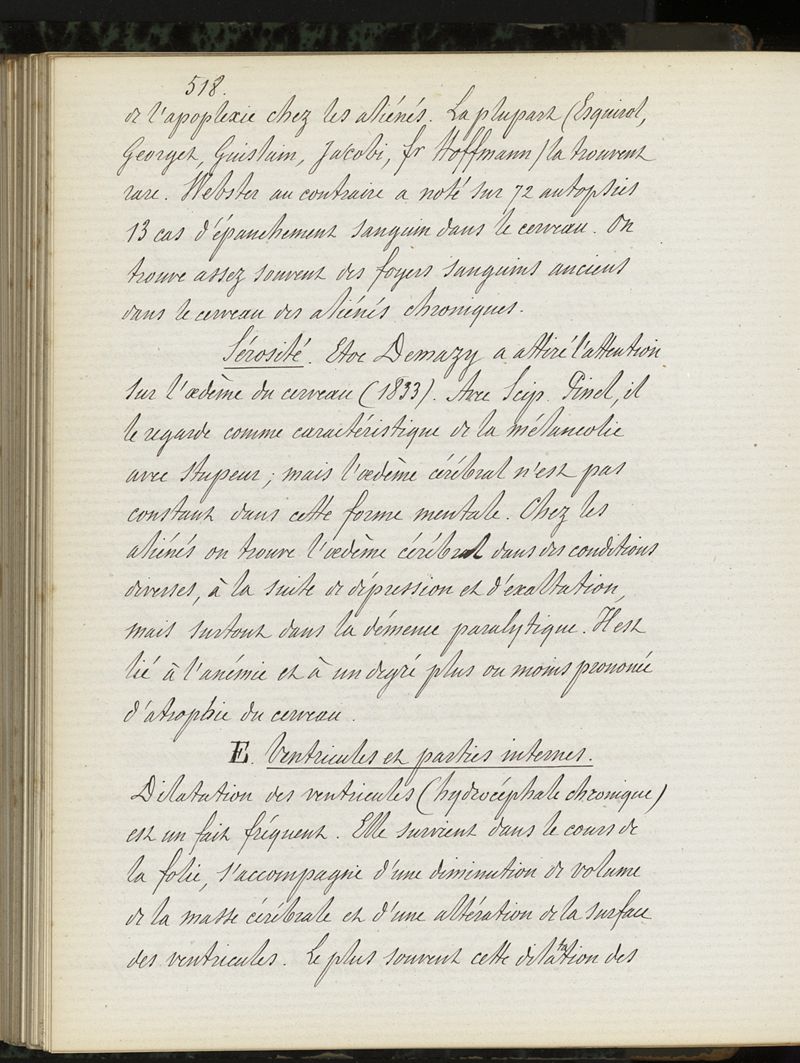 518.
de l'apoplexie chez les aliénés. La plupart (Esquirol,
Georget, Guislain, Jacobi, fr Hoffmann) la trouvent
rare. Webster au contraire a noté sur 72 autopsies
13 cas d'épanchement sanguin dans le cerveau. On
trouve assez souvent des foyers sanguins anciens
dans le cerveau des aliénés chroniques.
Sérosité. Etoc Demazy a attiré l'attention
sur l'œdème du cerveau (1833). Avec Scip. Pinel, il
le regarde comme caractéristique de la mélancolie
avec stupeur; mais l'œdème cérébral n'est pas
constant dans cette forme mentale. Chez les
aliénés on trouve l'œdème cérébral dans des conditions
diverses, à la suite de dépression et d'exaltation,
mais surtout dans la démence paralytique. Il est
lié à l'anémie et à un degré plus ou moins prononcé
d'atrophie du cerveau.
E. Ventricules et parties internes.
Dilatation des ventricules (hydrocéphale chronique)
est un fait fréquent. Elle survient dans le cours de
la folie, s'accompagne d'une diminution de volume
de la masse cérébrale et d'une altération de la surface
des ventricules. Le plus souvent cette dilatation des